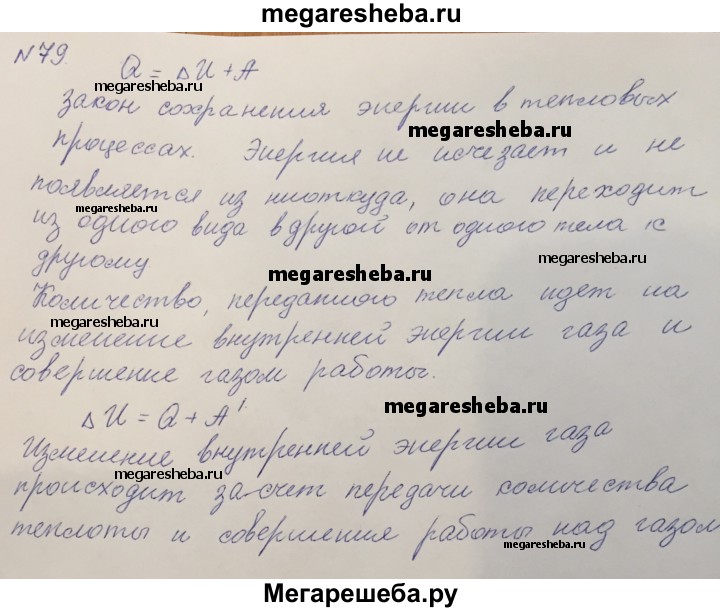 megaresheba.ru
№79.
Q = ΔU + A
megaresheba.ru
Закон сохранения энергии в тепловых
megaresheba.ru
процессах. Энергия не исчезает и не
megaresheba.ru
появляется из ниоткуда, она переходит
megaresheba.ru
из одного вида в другой от одного тела к
другому
megaresheba.ru
megaresheba.ru
Количество, переданного тепла идет на
megaresheba.ru
изменение внутренней энергии газа и
совершение газом работы.
ΔU = Q + A'
megaresheba.ru
Изменение внутренней энергии газа
megaresheba.ru
происходит за счет передачи количества
теплоты и совершения работы над газом
megaresheba.ru
Мегарешеба.ру